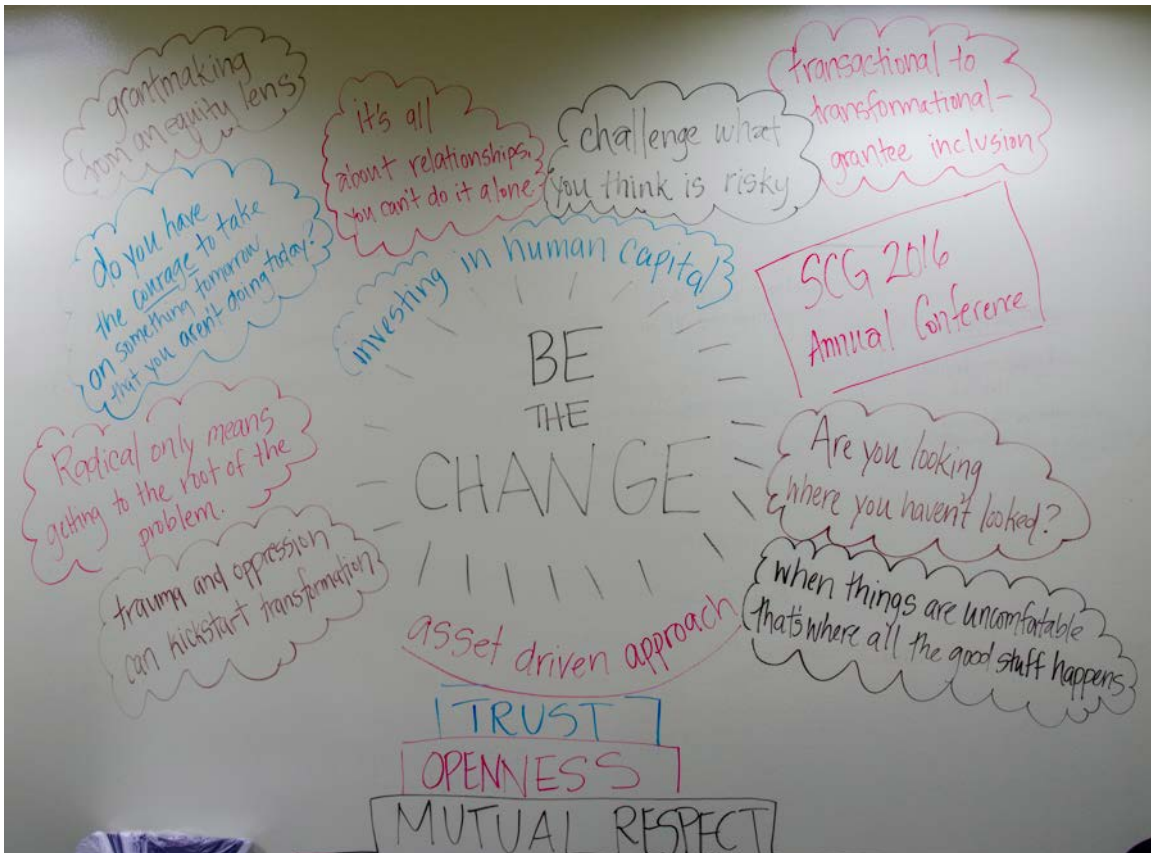 grantmaking
from an equity lens
it's all
about relationships,
you can't do it alone
challenge what
you think is risky
transactional to
transformational-
grantee inclusion
do you have
the courage to take
on something tomorrow
that you aren't doing today?
investing in human capital
SCG 2016
Annual Conference
BE
THE
CHANGE
Radical only means
getting to the root of the
problem.
Are you looking
where you haven't looked?
trauma and oppression
can kickstart transformation
when things are uncomfortable
that's where all the good stuff happens
asset driven approach
TRUST
OPENNESS
MUTUAL RESPECT